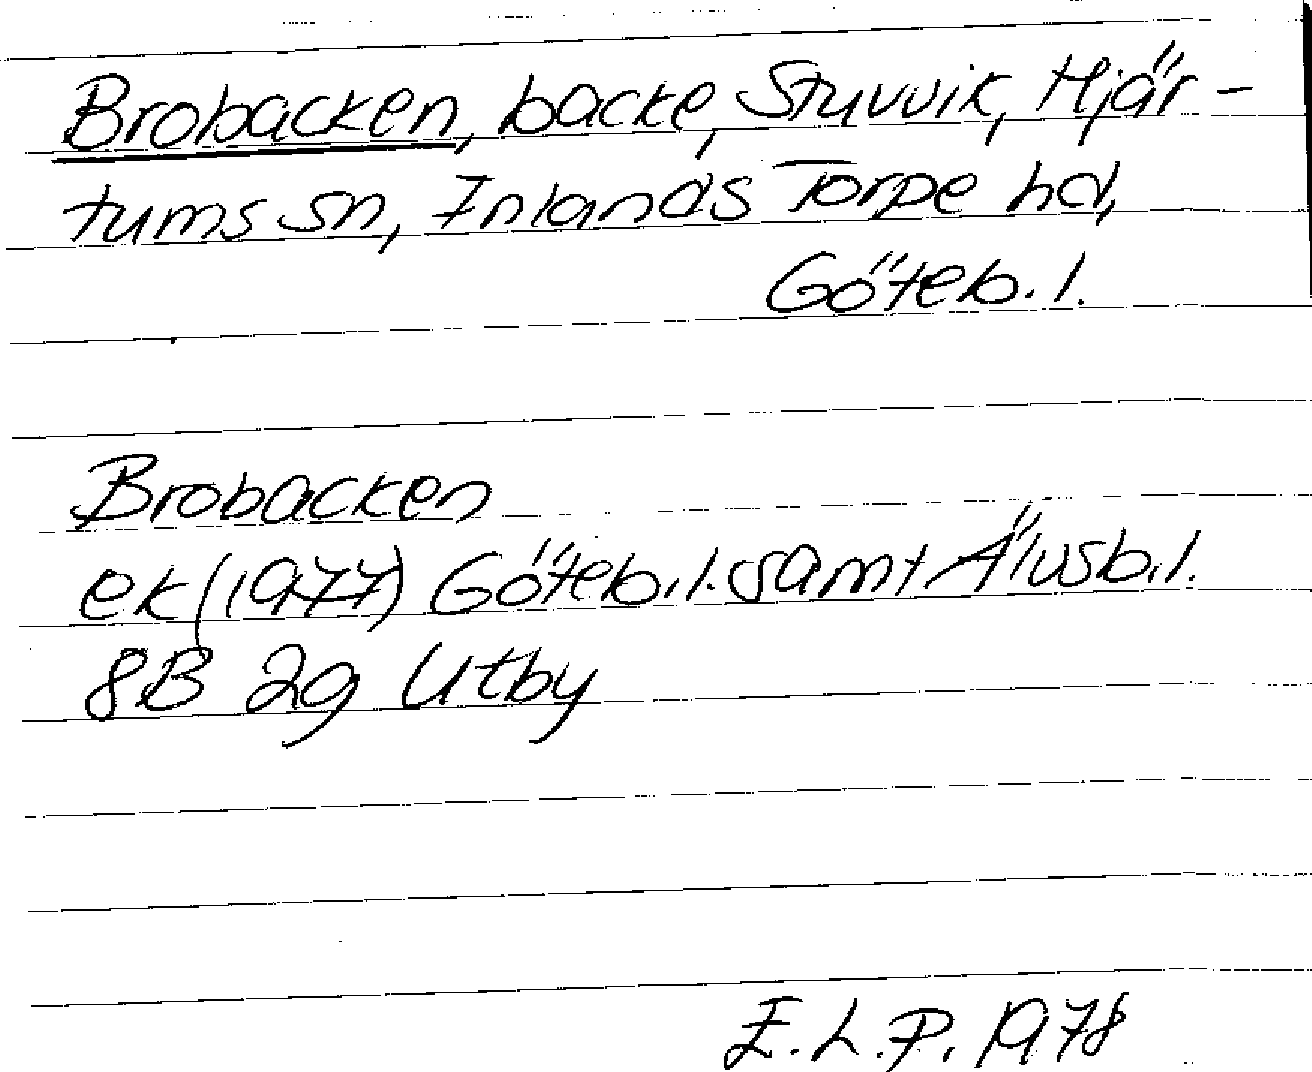 Brobacken, backe, Stuvvik, Hjär-
tums sn, Inlands Torpe hd,
Göteb. l.
Brobacken
ek (1977) Göteb. l. samt Älvsb. l.
8B 2g Utby
E.L.P. 1978